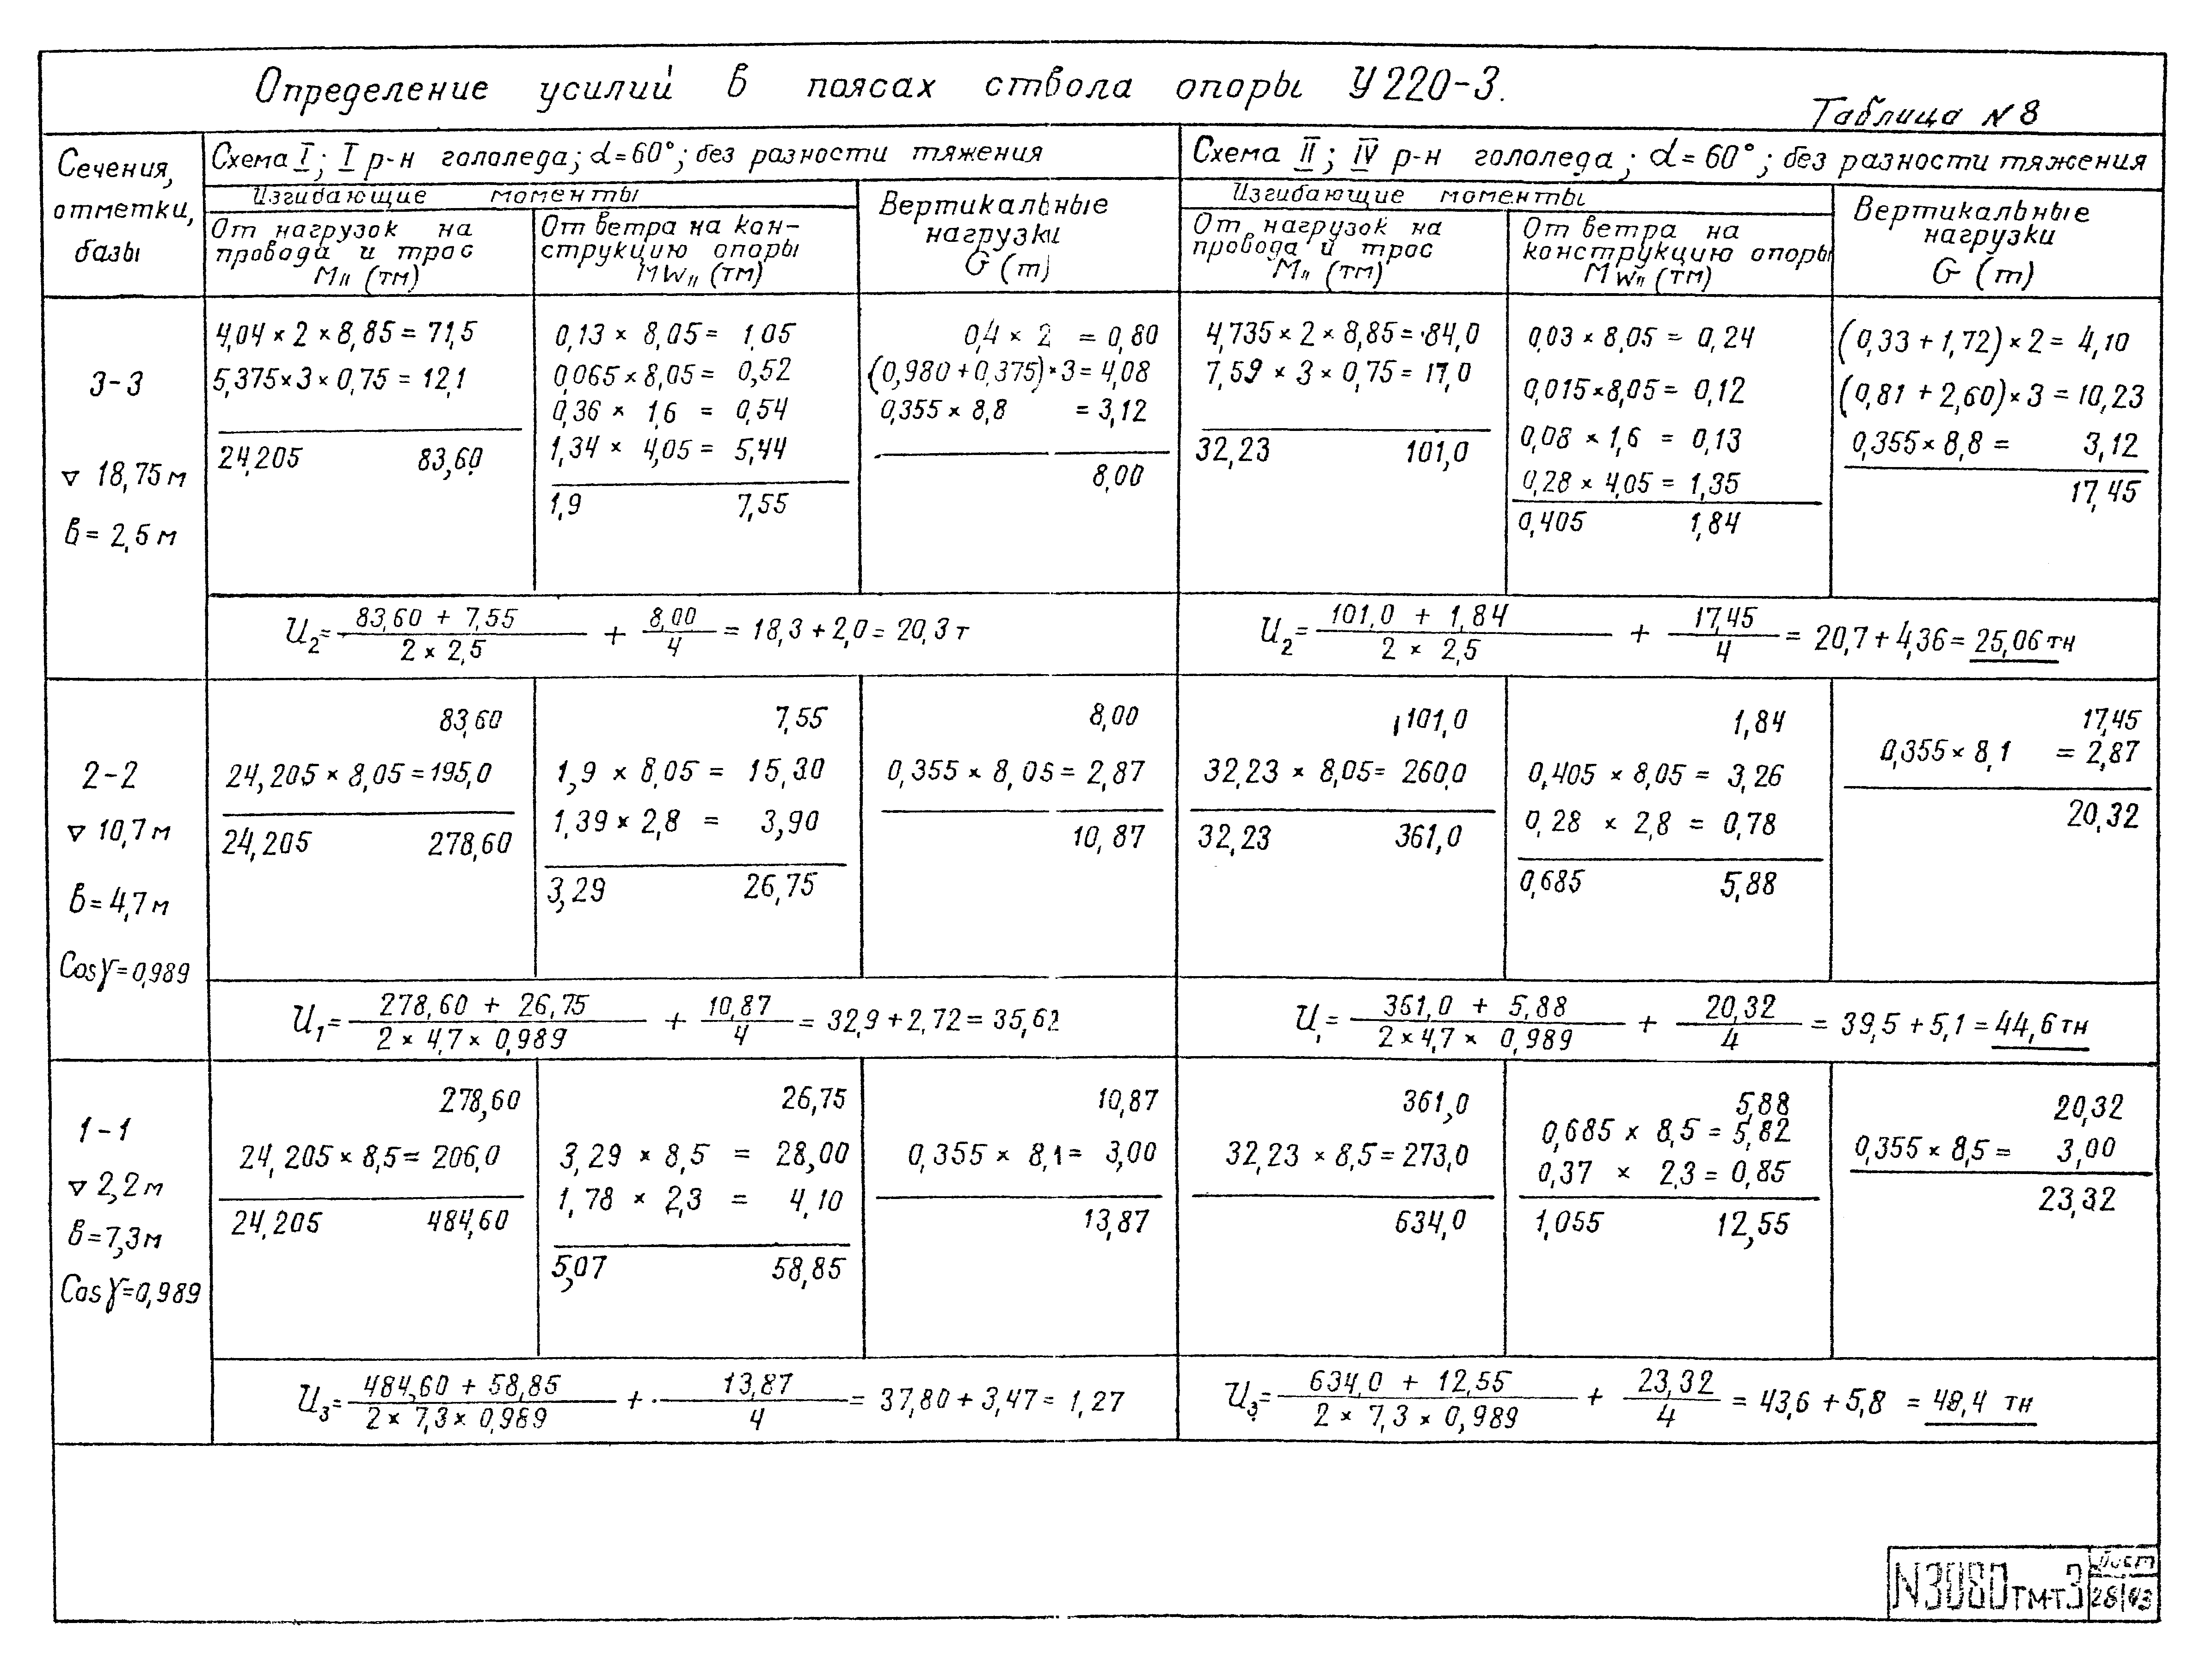 Определение усилий в поясах ствола опоры У220-3.
Таблица N 8
Сечения, отметки, базы
Схема I; I р-н гололеда; α=60°; без разности тяжения
Изгибающие моменты
От нагрузок на провода и трос Mп (тм)
От ветра на конструкцию опоры MWп (тм)
Вертикальные нагрузки G (т)
Схема II; IV р-н гололеда; α=60°; без разности тяжения
Изгибающие моменты
От нагрузок на провода и трос Mп (тм)
От ветра на конструкцию опоры MWп (тм)
Вертикальные нагрузки G (т)
3-3
▽ 18,75 м
в= 2,5 м
4,04 × 2 × 8,85 = 71,5
5,375×3×0,75 = 12,1
24,205 83,60
0,13 × 8,05 = 1,05
0,065×8,05 = 0,52
0,36 × 1,6 = 0,54
1,34 × 4,05 = 5,44
1,9 7,55
0,4 × 2 = 0,80
(0,980 + 0,375)×3 = 4,08
0,355 × 8,8 = 3,12
8,00
4,735×2×8,85=84,0
7,59 × 3 × 0,75 = 17,0
32,23 101,0
0,03 × 8,05 = 0,24
0,015×8,05 = 0,12
0,08 × 1,6 = 0,13
0,28 × 4,05 = 1,35
0,405 1,84
(0,33 + 1,72)×2 = 4,10
(0,81 + 2,60)×3 = 10,23
0,355×8,8 = 3,12
17,45
U2= (83,60 + 7,55)/(2 × 2,5) + 8,00/4 = 18,3 + 2,0 = 20,3 т
U2= (101,0 + 1,84)/(2 × 2,5) + 17,45/4 = 20,7 + 4,36 = 25,06 тн
2-2
▽ 10,7 м
в= 4,7 м
Cosγ=0,989
83,60
24,205 × 8,05 = 195,0
24,205 278,60
7,55
1,9 × 8,05 = 15,30
1,39 × 2,8 = 3,90
3,29 26,75
8,00
0,355 × 8,05 = 2,87
10,87
101,0
32,23 × 8,05 = 260,0
32,23 361,0
1,84
0,405 × 8,05 = 3,26
0,28 × 2,8 = 0,78
0,685 5,88
17,45
0,355× 8,1 = 2,87
20,32
U1= (278,60 + 26,75)/(2 × 4,7 × 0,989) + 10,87/4 = 32,9 + 2,72 = 35,62
U1= (361,0 + 5,88)/(2×4,7 × 0,989) + 20,32/4 = 39,5 + 5,1 = 44,6 тн
1-1
▽ 2,2 м
в=7,3м
Cosγ=0,989
278,60
24,205× 8,5 = 206,0
24,205 484,60
26,75
3,29 × 8,5 = 28,00
1,78 × 2,3 = 4,10
5,07 58,85
10,87
0,355 × 8,1 = 3,00
13,87
361,0
32,23 × 8,5=273,0
634,0
5,88
0,685 × 8,5 = 5,82
0,37 × 2,3 = 0,85
1,055 12,55
20,32
0,355 × 8,5 = 3,00
23,32
U3= (484,60 + 58,85)/(2 × 7,3 × 0,989) + 13,87/4 = 37,80 + 3,47 = 1,27
U3= (634,0 + 12,55)/(2 × 7,3 × 0,989) + 23,32/4 = 43,6 + 5,8 = 49,4 тн
N3080тм-т3
Лист
28 43